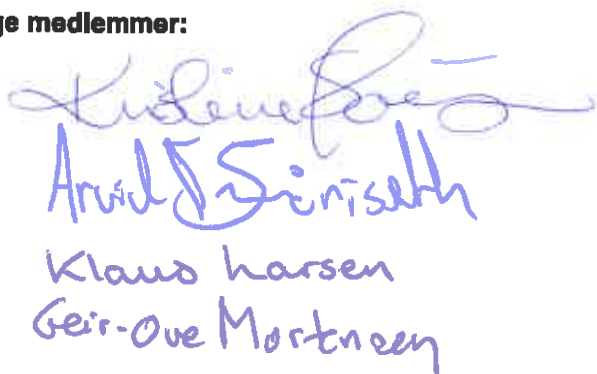 ge medlemmer:
Kristine
Arvid
Klaus Larsen
Geir-Ove Mortnsen